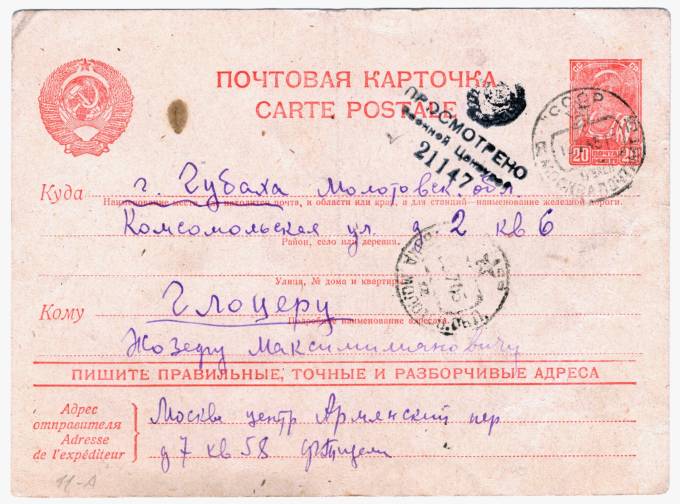 ПОЧТОВАЯ КАРТОЧКА
CARTE POSTALE
ПРОСМОТРЕНО
Военной Цензурой
21147
СССР
МОСКВА
20 ПОЧТА 20
Куда г. Губаха Молотовск. обл.
Наименование места, где находится почта, и области или края, а для станций—наименование железной дороги.
Комсомольская ул. д. 2 кв 6
Район, село или деревня.
Улица, № дома и квартиры.
Кому Глоцеру
Подробное наименование адресата.
Жозефу Максимилиановичу
ПИШИТЕ ПРАВИЛЬНЫЕ, ТОЧНЫЕ И РАЗБОРЧИВЫЕ АДРЕСА
Адрес отправителя
Adresse de l'expéditeur
Москва центр Армянский пер
д 7 кв 58
11-А